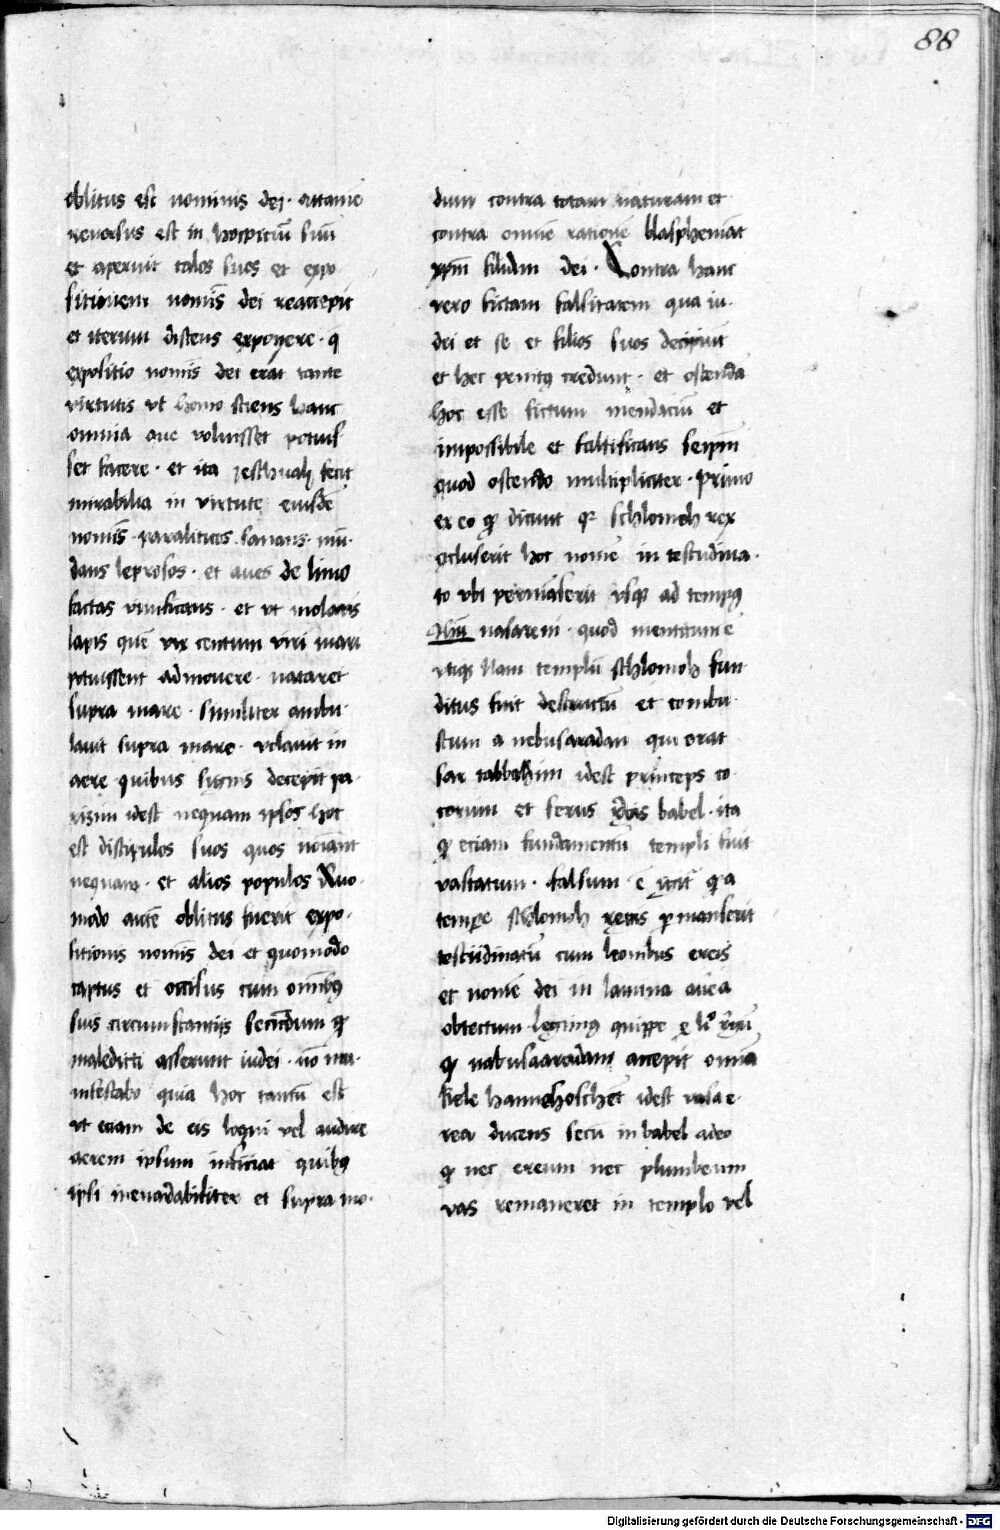 88
oblitus est nominis dei · attamē
reuersus est in hospiciū suū
et aperuit talos suos et expo
sitionem nomīs dei reaccepit
et iterum discens exponere · q
expositio nomīs dei erat tante
virtutis vt homo sciens hanc
omnia que voluisset potuis
set facere · et ita jeschuah fecit
mirabilia in virtute eiusdē
nomīs · paraliticos sanans · mū·
dans leprosos · et aues de limo
factas viuificans · et vt molaris
lapis quē vix centum viri mari
potuissent admouere · nataret
supra mare · similiter ambu·
lauit supra mare · volauit in
aere quibus signis decepit pa·
rizim idest nequam ipsos hoc
est discipulos suos quos noīant
nequam · et alios populos Quo·
modo autē oblitus fuerit expo·
sitionis nomīs dei et quomodo
captus et occisus cum omībꝯ
suis circumstantijs secūdum ꝙ
maledicti asserunt iudei · nō
infestabo quia hoc tantū est
vt eciam de eis loqui vel audire
aerem ipsum inficiat quibꝯ
ipsi et supra mo·
dum contra totam naturam et
contra omnē rationē blasphemāt
xpm̄ filium dei · Contra hanc
vero fictam falsitatem qua iu·
dei et se et filios suos decipiūt
et hec penitꝯ credunt · et ostendā
hoc esse fictum mendaciū et
impossibile et falsificans seipm̄
quod ostendo multipliciter · Primo
ex eo ꝙ dicunt ꝙ schlomoh rex
ꝯcluserit hoc nomē in testudina·
to vbi permāserit vsqꝫ ad tempꝯ
Jhū nasareni · quod mentitum ē
vtiqꝫ Nam templū schlomoh fun
ditus fuit destructū et combu·
stum a nebusaradan qui erat
sar tabbahim idest princeps co·
corum et seruus regis babel · ita
ꝙ eciam fundamentū templi fuit
vastatum · falsum ē igit̄ ꝙ a
tempe schlomoh regis ꝑmanserit
testudinatū cum leonibus ereis
et nomē dei in lamina aurea
obtectum · legimꝯ quippe ꝑ liº regū
ꝙ nabusaaradam accepit omīa
kele hannehoschet idest vasa e·
rea ducens secū in babel adeo
ꝙ nec ereum nec plumbeum
vas remaneret in templo vel
Digitalisierung gefördert durch die Deutsche Forschungsgemeinschaft · DFG